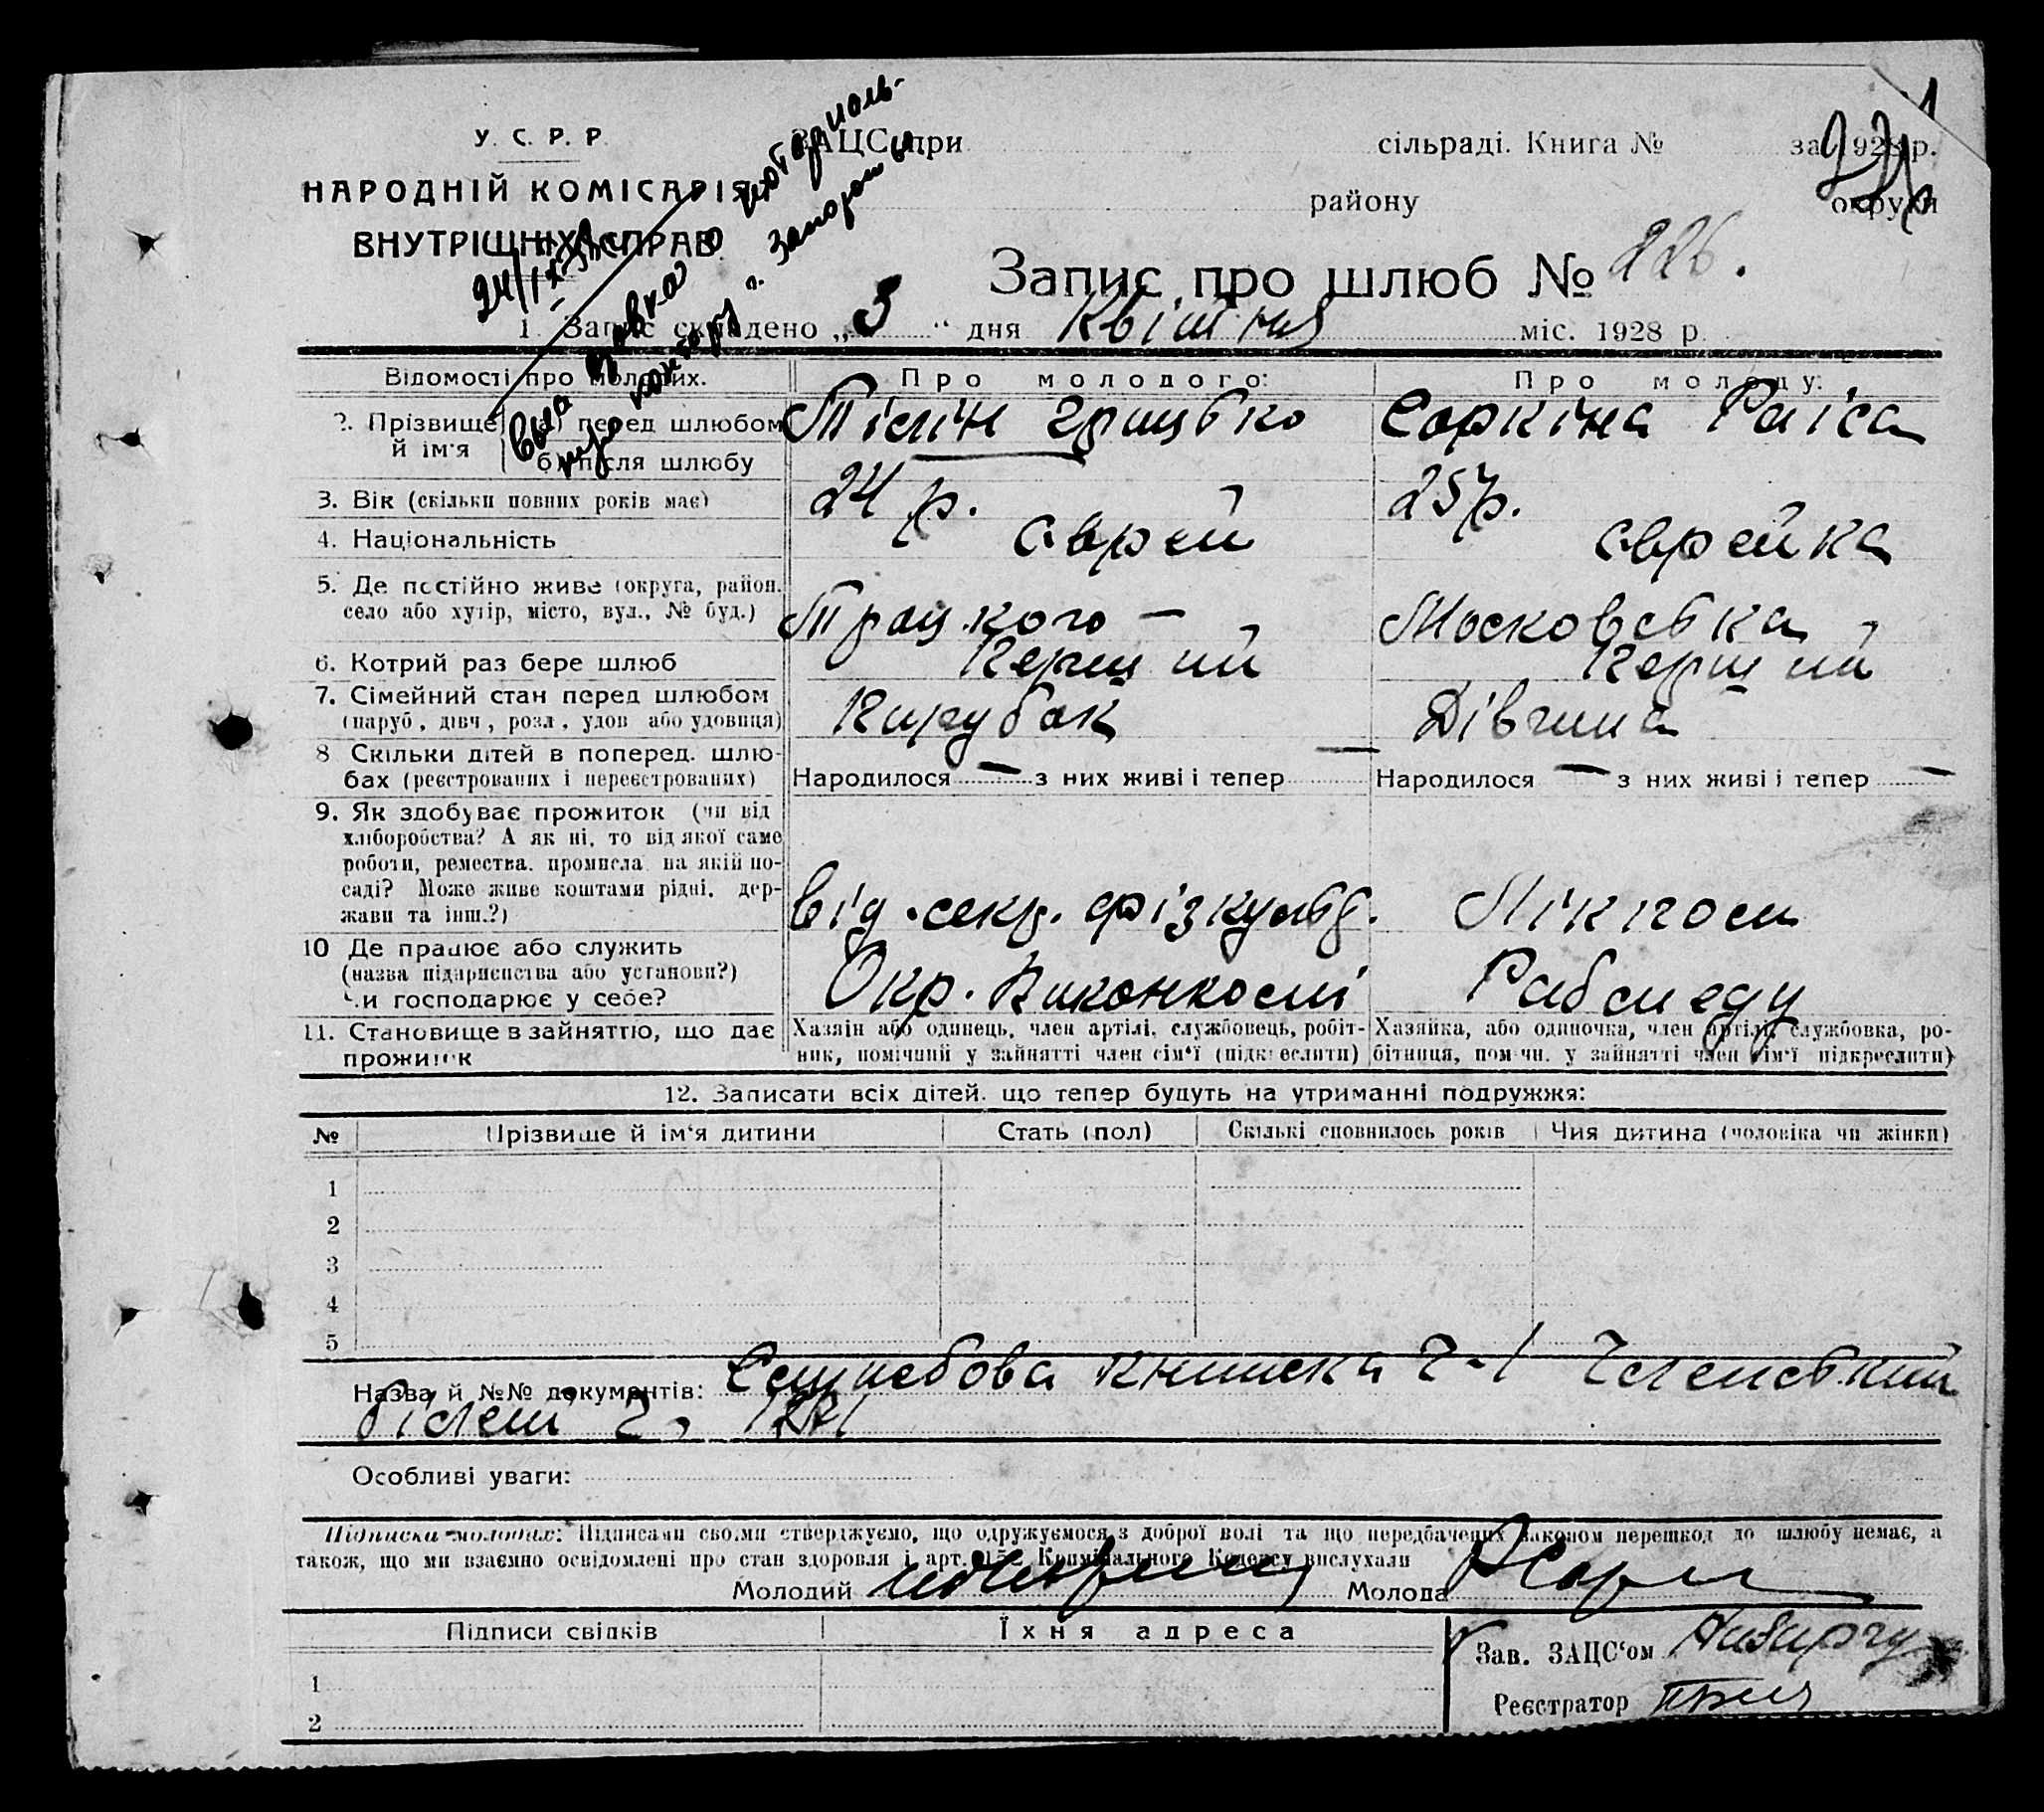 У. С. Р. Р.
НАРОДНІЙ КОМІСАРІЯТ
ВНУТРІШНІХ СПРАВ.
ЗАЦС при сільраді. Книга № за 1928 р.
району округи
Запис про шлюб № 226.
1. Запис складено „3“ дня Квітня міс. 1928 р.
24/IX
справка нотариаль-
конторы г. Запорожья
Відомості про молодих. Про молодого: Про молоду:
2. Прізвище й ім'я
а) перед шлюбом Тілін Грицько Соркіна Раіса
б) після шлюбу
3. Вік (скільки повних років має) 24 р. 25 р.
4. Національність єврей єврейка
5. Де постійно живе (округа, район,
село або хутір, місто, вул., № буд.) Троцкого — Московська
6. Котрий раз бере шлюб Перший Перший
7. Сімейний стан перед шлюбом
(паруб., дівч., розл., удов. або удовиця) Парубок Дівчина
8 Скільки дітей в поперед. шлю-
бах (реєстрованих і нереєстрованих) Народилося — з них живі і тепер — Народилося — з них живі і тепер —
9. Як здобуває прожиток (чи від
хліборобства? А як ні, то від якої саме
роботи, ремества, промисла на якій по-
саді? Може живе коштами рідні, дер-
жави та інш.?) Від. секр. фізкульт. Лікпом
10 Де працює або служить
(назва підприємства або установи?)
Чи господарює у себе? Окр. Виконкомі Рабмеду
11. Становище в зайняттю, що дає
прожиток
Хазяїн або одинець, член артілі, службовець, робіт-
ник, помічний у зайнятті член сім'ї (підкреслити)
Хазяйка, або одиночка, член артілі, службовка, ро-
бітниця, пом чн. у зайнятті член сім'ї підкреслити)
12. Записати всіх дітей, що тепер будуть на утриманні подружжя:
№ Прізвище й ім'я дитини Стать (пол) Скількі сповнилось років Чия дитина (чоловіка чи жінки)
1
2
3
4
5
Назва й №№ документів: книжка Членський
білет
Особливі уваги:
Підписка молодих: Підписами своїми стверджуємо, що одружуємося з доброї волі та що передбачених законом перешкод до шлюбу немає, а
також, що ми взаємно освідомлені про стан здоровля і арт. 15 Кримінального Кодексу вислухали
Молодий Молода
Підписи свідків Їхня адреса
1
2
Зав. ЗАЦС'ом
Реєстратор